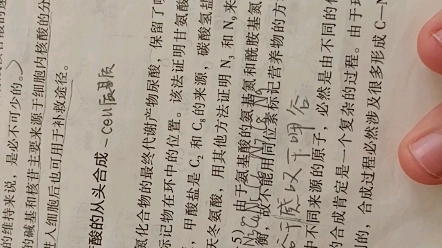 的维持来说，是必不可少的。
的碱基和核苷主要来源于细胞内核酸的分
进入细胞后也可用于补救途径。
酸的从头合成
氮化合物的最终代谢产物尿酸，保留了嘌
标记物在环中的位置。该法证明甘氨酸
，甲酸盐是 C₂ 和 C₈ 的来源，碳酸氢盐
天冬氨酸，用其他方法证明 N₃ 和 N₉ 来
5）。由于氨基酸的氨基氮和酰胺基氮
衡，因此不能用同位素标记营养物的方
由不同来源的原子，必然是由不同的
的合成肯定是一个复杂的过程。由于
的，合成过程必然涉及很多形成 C—N